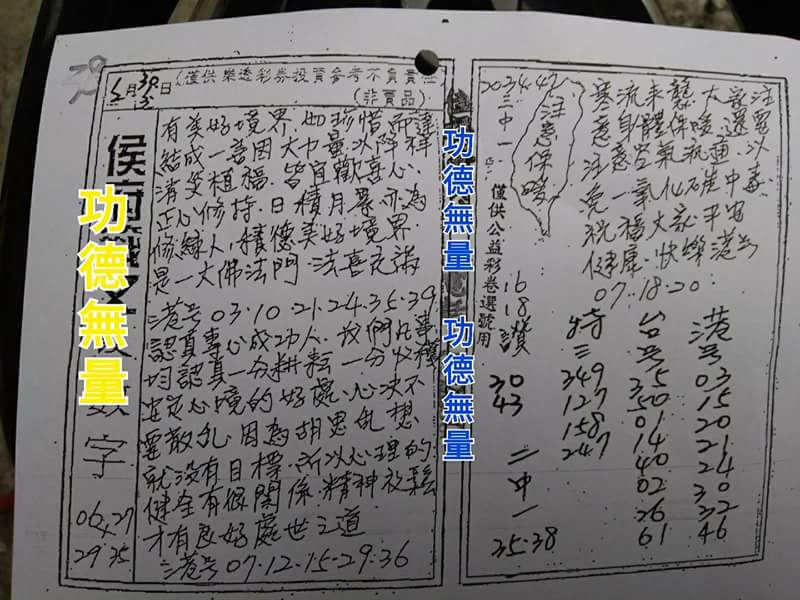 20.34.47
三中一
注意保暖
寒流来襲大家注
意身體保暖還要
注意空氣流通以
免一氧化碳中毒
祝福大家平安
健康.快樂港号
07.18.20
僅供公益彩卷選號用
16
18
讚
30
43
二中一
35.38
特三
349
127
158
247
台号
35
50
01
14
40
02
26
61
港号
03
15
20
21
24
30
32
46
月
日
(僅供樂透彩券投資參考不負責
(非賣品)
有美好境界.如珍惜
結成一善因大力量以降祥
消災植福.皆宜歡喜心.
正心修持.日積月累亦為
修練人,積德美好境界.
是一大佛法門.法喜充滿
港号03.10.21.24.35.39
認真專心成功人.我們凡事
均認真一分耕耘一分收穫
定心境的好處.心決不
要散乱.因為胡思乱想.
就没有目標.所以心理的
健全有很関係.精神放鬆
才有良好處世之道
港号07.12.15.29.36
侯府
数字
06
27
29
35
功德無量
功德無量
功德無量